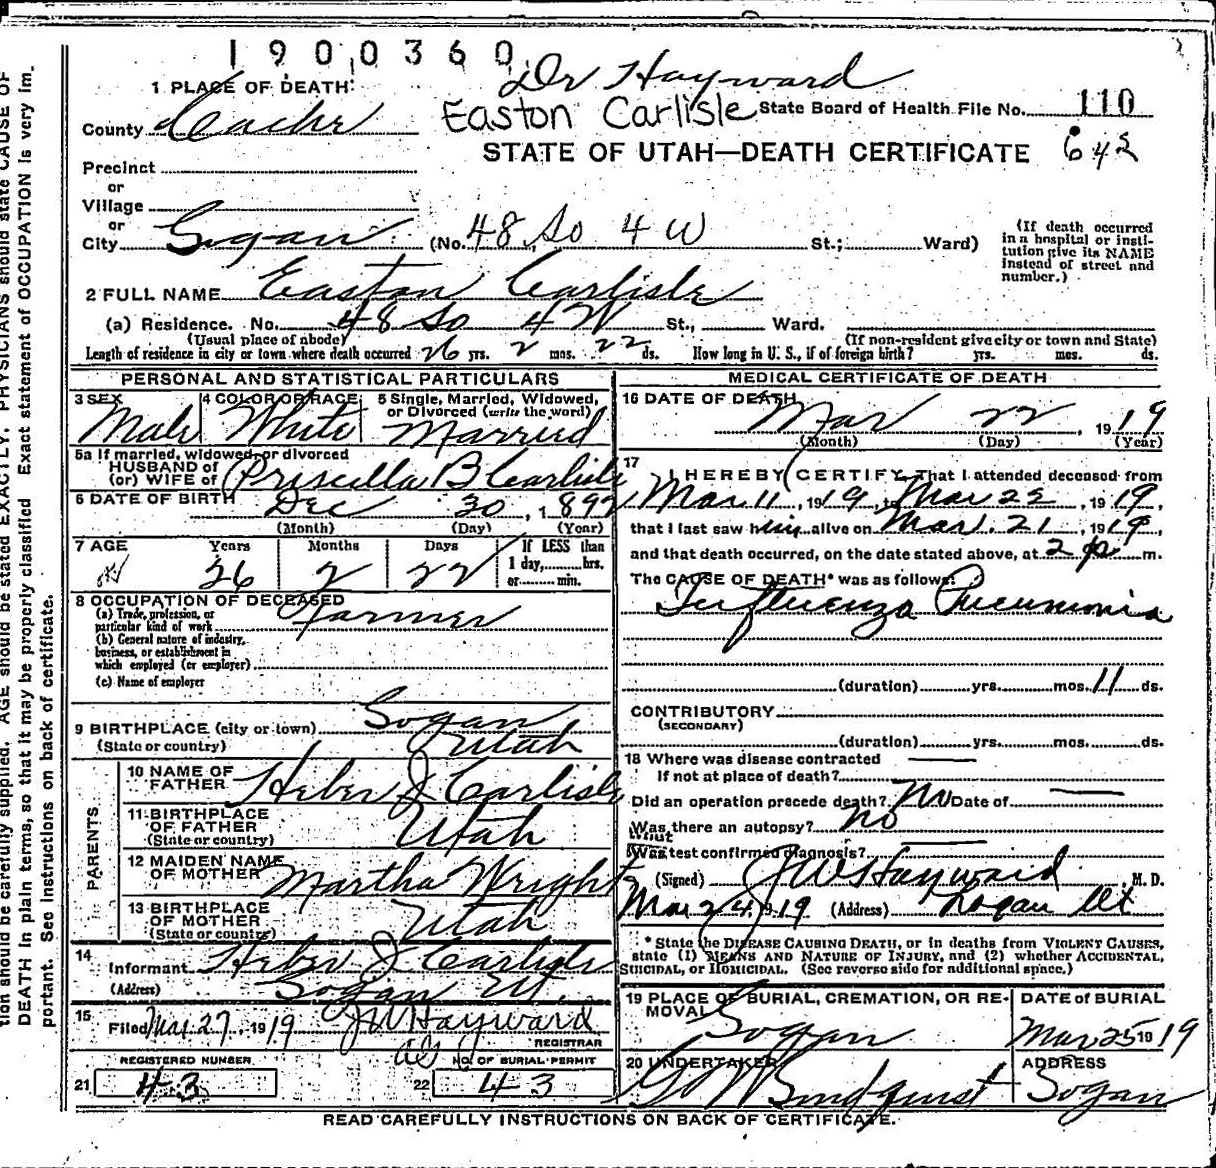 1900360
Dr Hayward
1 PLACE OF DEATH:
Easton Carlisle State Board of Health File No. 110
County Cache
STATE OF UTAH—DEATH CERTIFICATE 642
Precinct
or
Village
or
City Logan (No. 48 So 4 W St.; Ward)
(If death occurred in a hospital or insti-
tution give its NAME
instead of street and
number.)
2 FULL NAME Easton Carlisle
(a) Residence. No. 48 So 4 W St., Ward.
(Usual place of abode) (If non-resident give city or town and State)
Length of residence in city or town where death occurred 26 yrs. 2 mos. 22 ds. How long in U. S., if of foreign birth? yrs. mos. ds.
PERSONAL AND STATISTICAL PARTICULARS
3 SEX 4 COLOR OR RACE 5 Single, Married, Widowed,
or Divorced (write the word)
Male White Married
5a If married, widowed or divorced
HUSBAND of
(or) WIFE of Priscilla B Carlisle
6 DATE OF BIRTH Dec 30, 1892
(Month) (Day) (Year)
7 AGE Years Months Days If LESS than
1 day, hrs.
or min.
26 2 22
8 OCCUPATION OF DECEASED
(a) Trade, profession, or
particular kind of work Farmer
(b) General nature of industry,
business, or establishment in
which employed (or employer)
(c) Name of employer
9 BIRTHPLACE (city or town) Logan
(State or country) Utah
PARENTS
10 NAME OF
FATHER Heber J Carlisle
11 BIRTHPLACE
OF FATHER
(State or country) Utah
12 MAIDEN NAME
OF MOTHER Martha Wright
13 BIRTHPLACE
OF MOTHER
(State or country) Utah
14 Informant Heber J Carlisle
(Address) Logan Ut.
15 Filed Mar 27, 1919 J W Hayward
REGISTRAR
REGISTERED NUMBER NO. OF BURIAL PERMIT
21 43 22 43
MEDICAL CERTIFICATE OF DEATH
16 DATE OF DEATH
Mar 22, 1919
(Month) (Day) (Year)
17 I HEREBY CERTIFY, That I attended deceased from
Mar 11, 1919, to Mar 22, 1919,
that I last saw him alive on Mar. 21, 1919,
and that death occurred, on the date stated above, at 2 p m.
The CAUSE OF DEATH* was as follows:
Influenza Pneumonia
(duration) yrs. mos. 11 ds.
CONTRIBUTORY
(SECONDARY)
(duration) yrs. mos. ds.
18 Where was disease contracted
If not at place of death?
Did an operation precede death? No Date of
Was there an autopsy? No
What
test confirmed diagnosis?
(Signed) J W Hayward M. D.
Mar 24, 1919 (Address) Logan Ut
* State the DISEASE CAUSING DEATH, or in deaths from VIOLENT CAUSES,
state (1) MEANS AND NATURE OF INJURY, and (2) whether ACCIDENTAL,
SUICIDAL, or HOMICIDAL. (See reverse side for additional space.)
19 PLACE OF BURIAL, CREMATION, OR RE-
MOVAL DATE of BURIAL
Logan Mar 25 1919
20 UNDERTAKER ADDRESS
Lindquist Logan
READ CAREFULLY INSTRUCTIONS ON BACK OF CERTIFICATE.
tion should be carefully supplied. AGE should be stated EXACTLY. PHYSICIANS should state CAUSE OF
DEATH in plain terms, so that it may be properly classified. Exact statement of OCCUPATION is very im-
portant. See instructions on back of certificate.